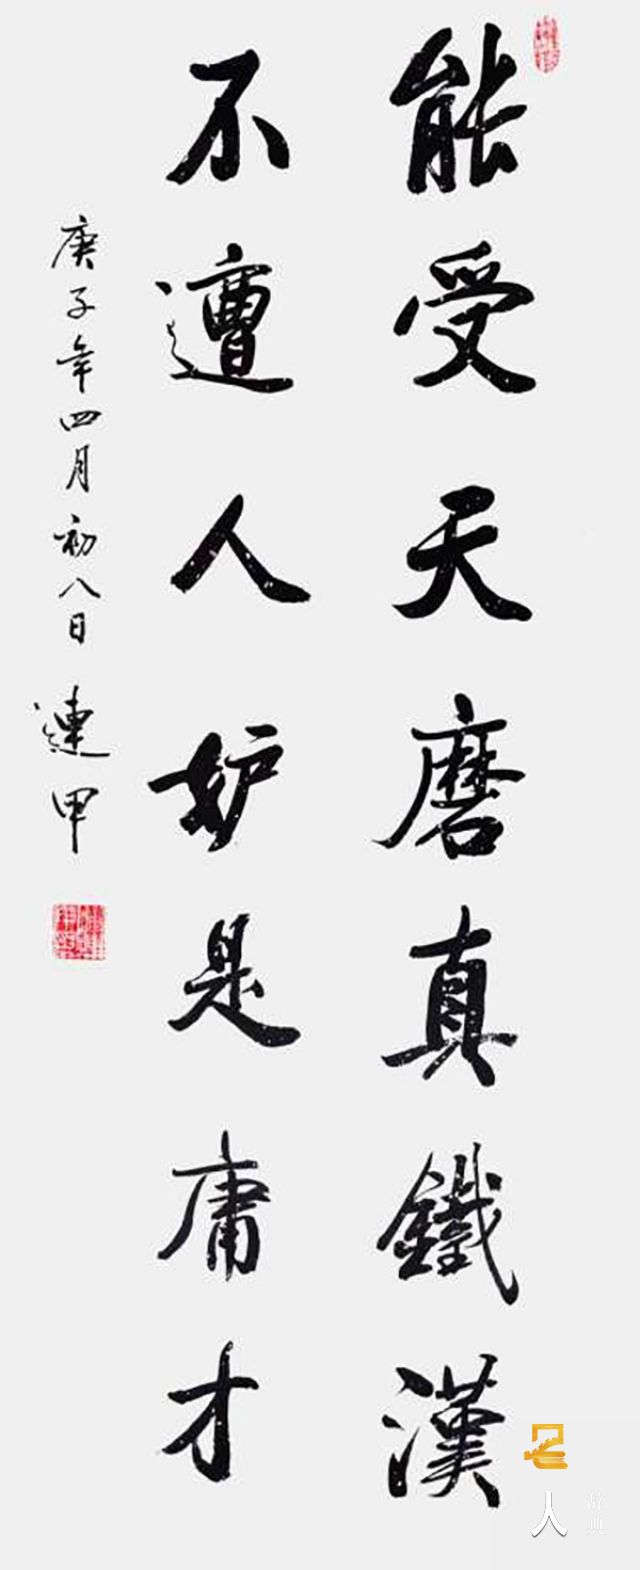 能受天磨真鐵漢
不遭人妒是庸才
庚子年四月初八日 連甲
名人
辞典